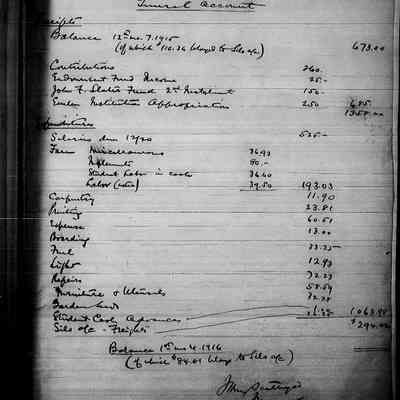 General Account
Receipts
Balance 12 mo. 7. 1915
(of which $110.36 belongs to Sils a/c) 673.00
Contributions 260.
Endowment Fund Income 25.-
John F. Slater Fund 2d Instalment 150.-
Institution Appropriation 250 685.
1358.00
Expenditures
Salaries due 12/20 525.-
Farm Miscellaneous 36.93
Implements 80.-
Student Labor in cash 36.60
Labor 39.50 193.03
Carpentry 11.90
Printing 23.81
Expense 60.51
Boarding 13.00
Fuel 33.25
Light 12.93
Repairs 32.23
Furniture & Utensils
Garden
Student Cash Advances 1063.98
Sils a/c - Freights $294.02
Balance 1st mo 4. 1916
(of which $84.01 belongs to Sils a/c)